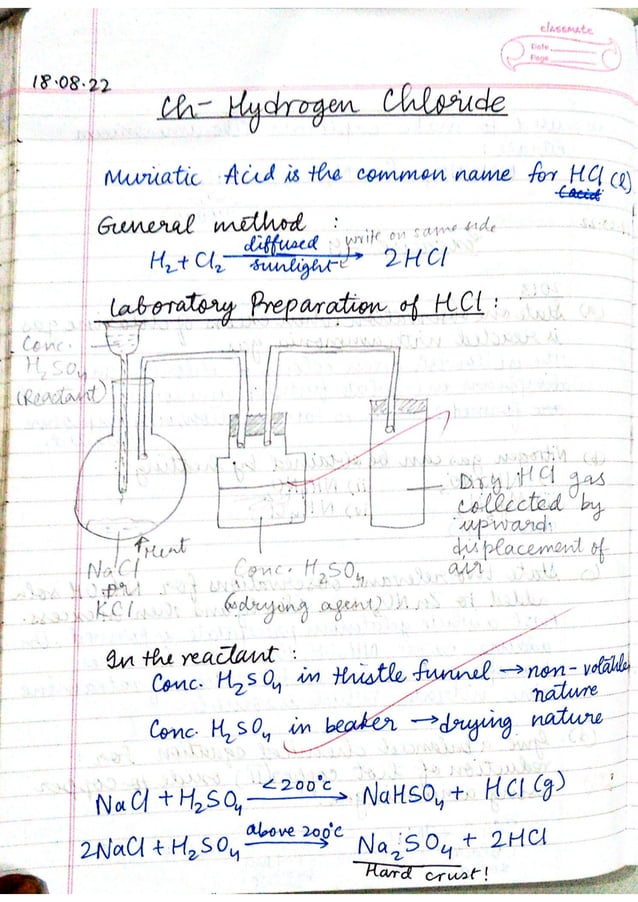 classmate
Date
Page
18.08.22
Ch- Hydrogen Chloride
Muriatic Acid is the common name for HCl (l)
(acid
General method :
H₂ + Cl₂ diffused sunlight → 2HCl
write on same side
Laboratory Preparation of HCl :
Conc.
H₂SO₄
(Reactant)
↑Heat
NaCl
or
KCl
Conc. H₂SO₄
(drying agent)
Dry HCl gas
collected by
upward
displacement of
air
In the reactant :
Conc. H₂SO₄ in thistle funnel → non-volatile
nature
Conc. H₂SO₄ in beaker → drying nature
NaCl + H₂SO₄ <200°C → NaHSO₄ + HCl (g)
2NaCl + H₂SO₄ above 200°C → Na₂SO₄ + 2HCl
Hard crust!